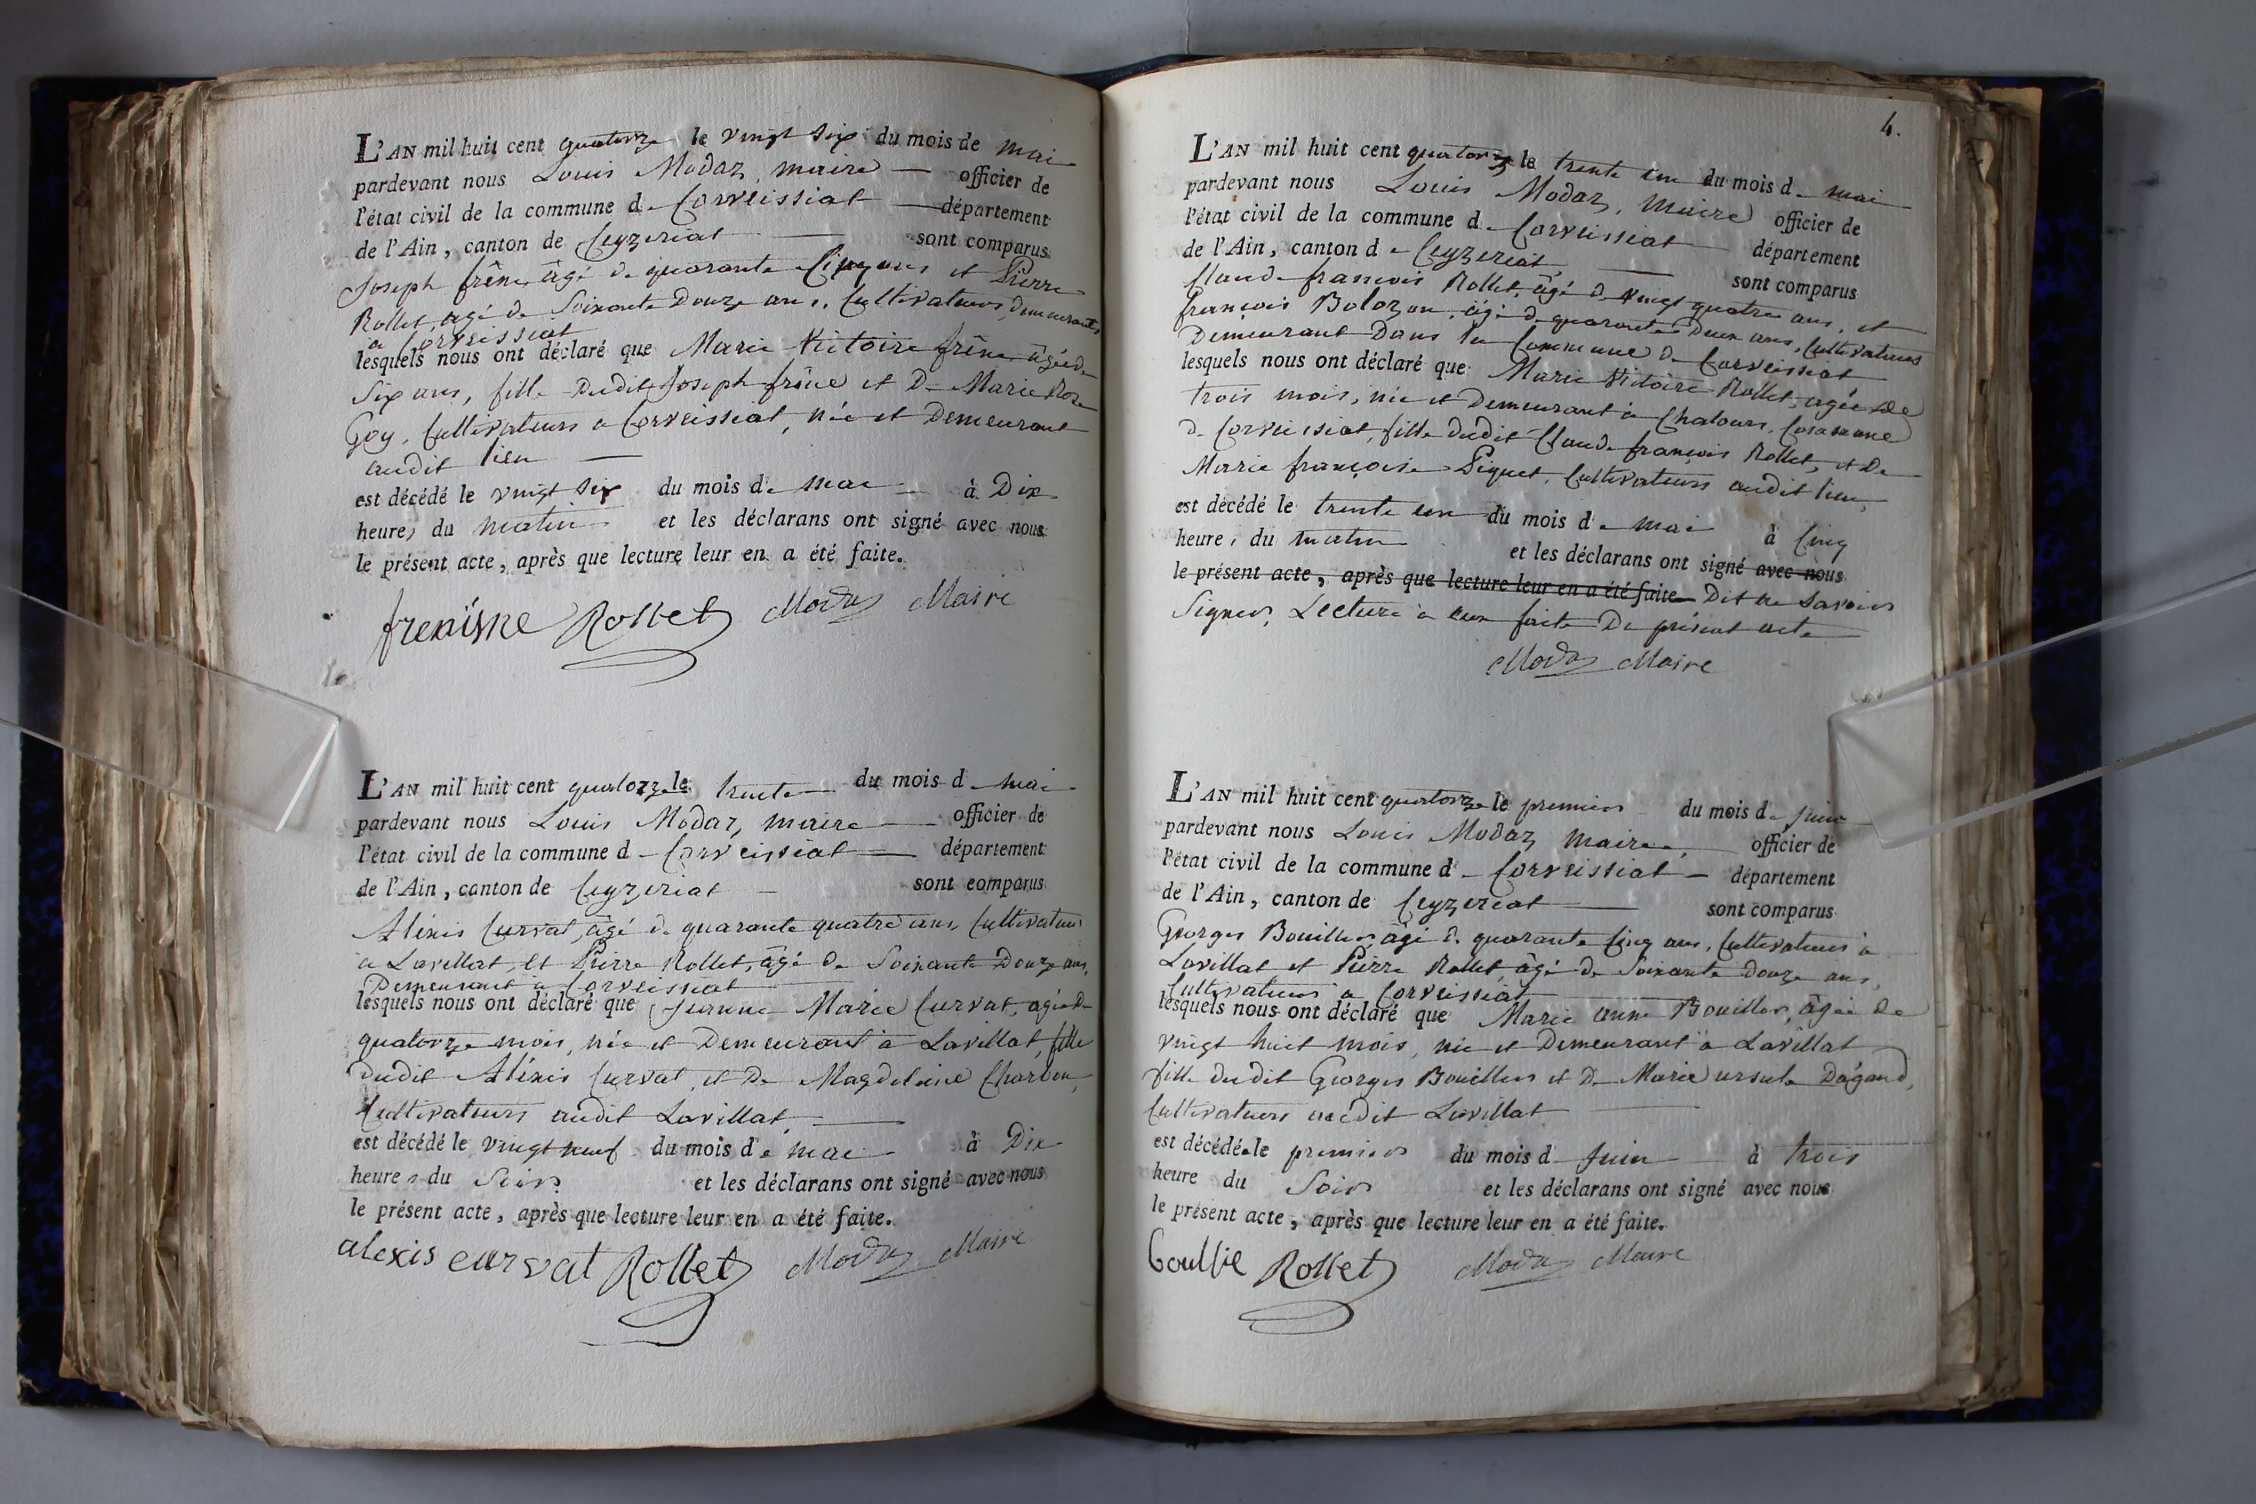 L'AN mil huit cent quatorze le vingt six du mois de mai
pardevant nous Louis Modaz, maire officier de
l'état civil de la commune de Corveissiat département
de l'Ain, canton de Ceyzeriat sont comparus
Joseph frêne âgé de quarante Cinq ans et Pierre
Rollet, agé de Soixante Douze ans, Cultivateurs, demeurants
a Corveissiat
lesquels nous ont déclaré que Marie Victoire frêne âgée de
Six ans, fille dudit Joseph frêne et De Marie Rose
Goy, Cultivateurs a Corveissiat, née et Demeurant
audit lieu
est décédé le vingt six du mois de mai à Dix
heures du matin et les déclarans ont signé avec nous
le présent acte, après que lecture leur en a été faite.
Rollet Modaz Maire
L'AN mil huit cent quatorze le trente du mois de mai
pardevant nous Louis Modaz, maire officier de
l'état civil de la commune de Corveissiat département
de l'Ain, canton de Ceyzeriat sont comparus
Aléxis Curvat, âgé de quarante quatre ans, Cultivateur
a Lavillat, et Pierre Rollet, âgé de Soixante Douze ans,
Demeurant a Corveissiat
lesquels nous ont déclaré que Jeanne Marie Curvat, agée de
quatorze mois, née et Demeurant à Lavillat, fille
dudit Aléxis Curvat, et De Magdelaine Charben,
Cultivateurs audit Lavillat,
est décédé le vingt neuf du mois de mai à Dix
heures du Soir et les déclarans ont signé avec nous
le présent acte, après que lecture leur en a été faite.
alexis curvat Rollet Modaz Maire
4.
L'AN mil huit cent quatorze le trente un du mois de mai
pardevant nous Louis Modaz, Maire officier de
l'état civil de la commune de Corveissiat département
de l'Ain, canton de Ceyzeriat sont comparus
Claude françois Rollet, âgé de vingt quatre ans, et
françois Bolozon, âgé de quarante Deux ans, Cultivateurs
Demeurant Dans la Commune de Corveissiat
lesquels nous ont déclaré que Marie Victoire Rollet, agée de
trois mois, née et Demeurant à Chalours, Commune
de Corveissiat, fille dudit Claude françois Rollet, et De
Marie françoise Piquet, Cultivateurs audit lieu,
est décédé le trente un du mois de mai à Cinq
heures du matin et les déclarans ont signé avec nous
le présent acte, après que lecture leur en a été faite Dit ne savoir
Signer, Lecture à eux faite Du présent acte
Modaz Maire
L'AN mil huit cent quatorze le premier du mois de Juin
pardevant nous Louis Modaz, maire officier de
l'état civil de la commune de Corveissiat département
de l'Ain, canton de Ceyzeriat sont comparus
Georges Bouiller, âgé de quarante Cinq ans, Cultivateur à
Lavillat et Pierre Rollet âgé de Soixante douze ans,
Cultivateur a Corveissiat
lesquels nous ont déclaré que Marie anne Bouiller, âgée de
vingt huit mois, née et Demeurant à Lavillat
fille dudit Georges Bouiller et De Marie ursule Dagand,
Cultivateurs audit Lavillat
est décédé le premier du mois de Juin à trois
heure du Soir et les déclarans ont signé avec nous
le présent acte, après que lecture leur en a été faite.
Rollet Modaz Maire